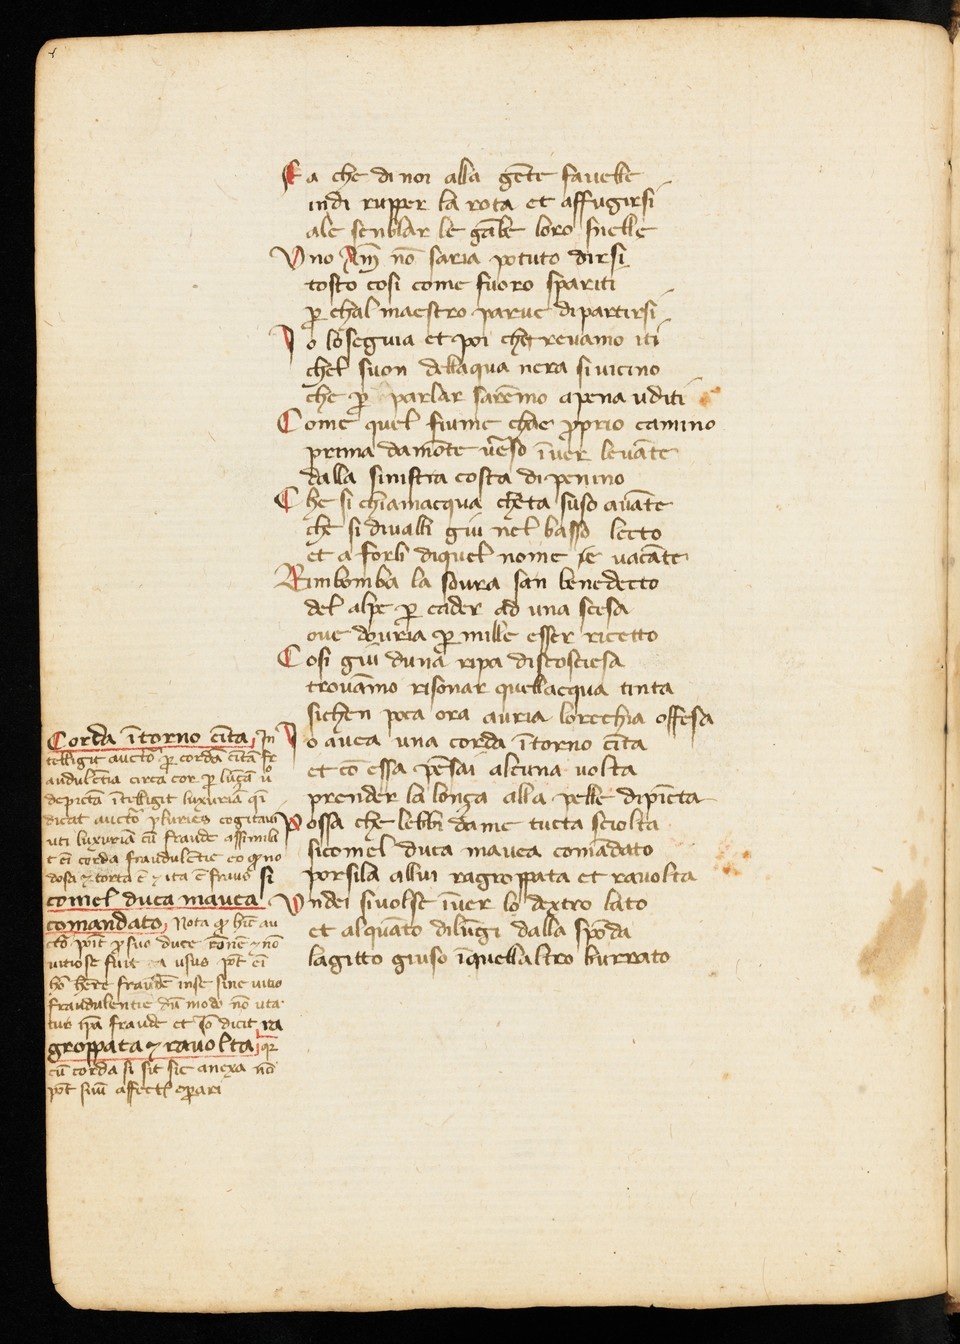 Fa che di noi alla gēte fauelle
indi rupper la rota et affugirsi
ale senblar le gābe loro snelle
Vno Am̄ nō saria potuto dirsi
tosto cosi come fuoro spariti
ꝑ chal maestro parue dipartirsi
Io loseguia et poi cheravamo iti
chel suon dellaqua nera siuicino
che ꝑ parlar sarēmo apena uditi
Come quel fiume chae ꝓprio camino
prima damōte ūeso īuer leuāte
dalla sinistra costa di penino
Che si chiamacqua cheta suso auāte
che si diualli giu nel basso lecto
et a forli diquel nome e uacāte
Rimbomba la soura san benedecto
del alpe ꝑ cader ad una scesa
oue douria ꝑ mille esser ricetto
Cosi giu duna ripa discosciesa
trouāmo risonar quellacqua tinta
sichen poca ora auria lorechia offesa
Io auea una corda ītorno cīta
et cō essa pēsai alcuna uolta
prender la lonça alla pelle dipīcta
Possa che lebbi da me tucta sciolta
sicomel duca mauea comādato
porsila allui ragroppata et rauolta
Vndei siuolse īuer lo dextro lato
et alquāto dilūgi dalla spōda
lagitto giuso īquellaltro burrato
Corda ītorno cīta, In
telligit auctō ꝑ cordā cītā fr
audulētia circa cor ꝑ lūçā ū
depictā ītelligit luxuriā qi
dicat auctō pluries cogitaui
uti luxuriā cū fraude assimila
t eī corda fraudulētie eo qꝫ no
dosa ⁊ torta ē ⁊ ita ē friuo si
comel duca mauea
comandato, Nota qꝫ hic au
ctō poīt ꝓ suo duce rōnē ⁊ nō
uitiose fuit usus pōt eī
hō hēre fraudē inse sine uitio
fraudulentie dū modo nō uta
tur ip̄a fraude et iō dicit ra
groppata ⁊ rauolta, qꝛ
cū corda si sit sic anexa nō
pōt suū affectū oꝑari